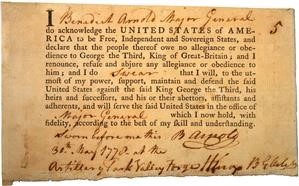 I Benedict Arnold Major General 5
do acknowledge the UNITED STATES of AME-
RICA to be Free, Independent and Sovereign States, and
declare that the people thereof owe no allegiance or obe-
dience to George the Third, King of Great-Britain; and I
renounce, refuse and abjure any allegiance or obedience
to him; and I do Swear that I will, to the ut-
most of my power, support, maintain and defend the said
United States against the said King George the Third, his
heirs and successors, and his or their abettors, assistants and
adherents, and will serve the said United States in the office of
Major General which I now hold, with
fidelity, according to the best of my skill and understanding.
Sworn before me this B Arnold
30th May 1778 at the
Artillery Park Valley Forge HKnox B G Artillery